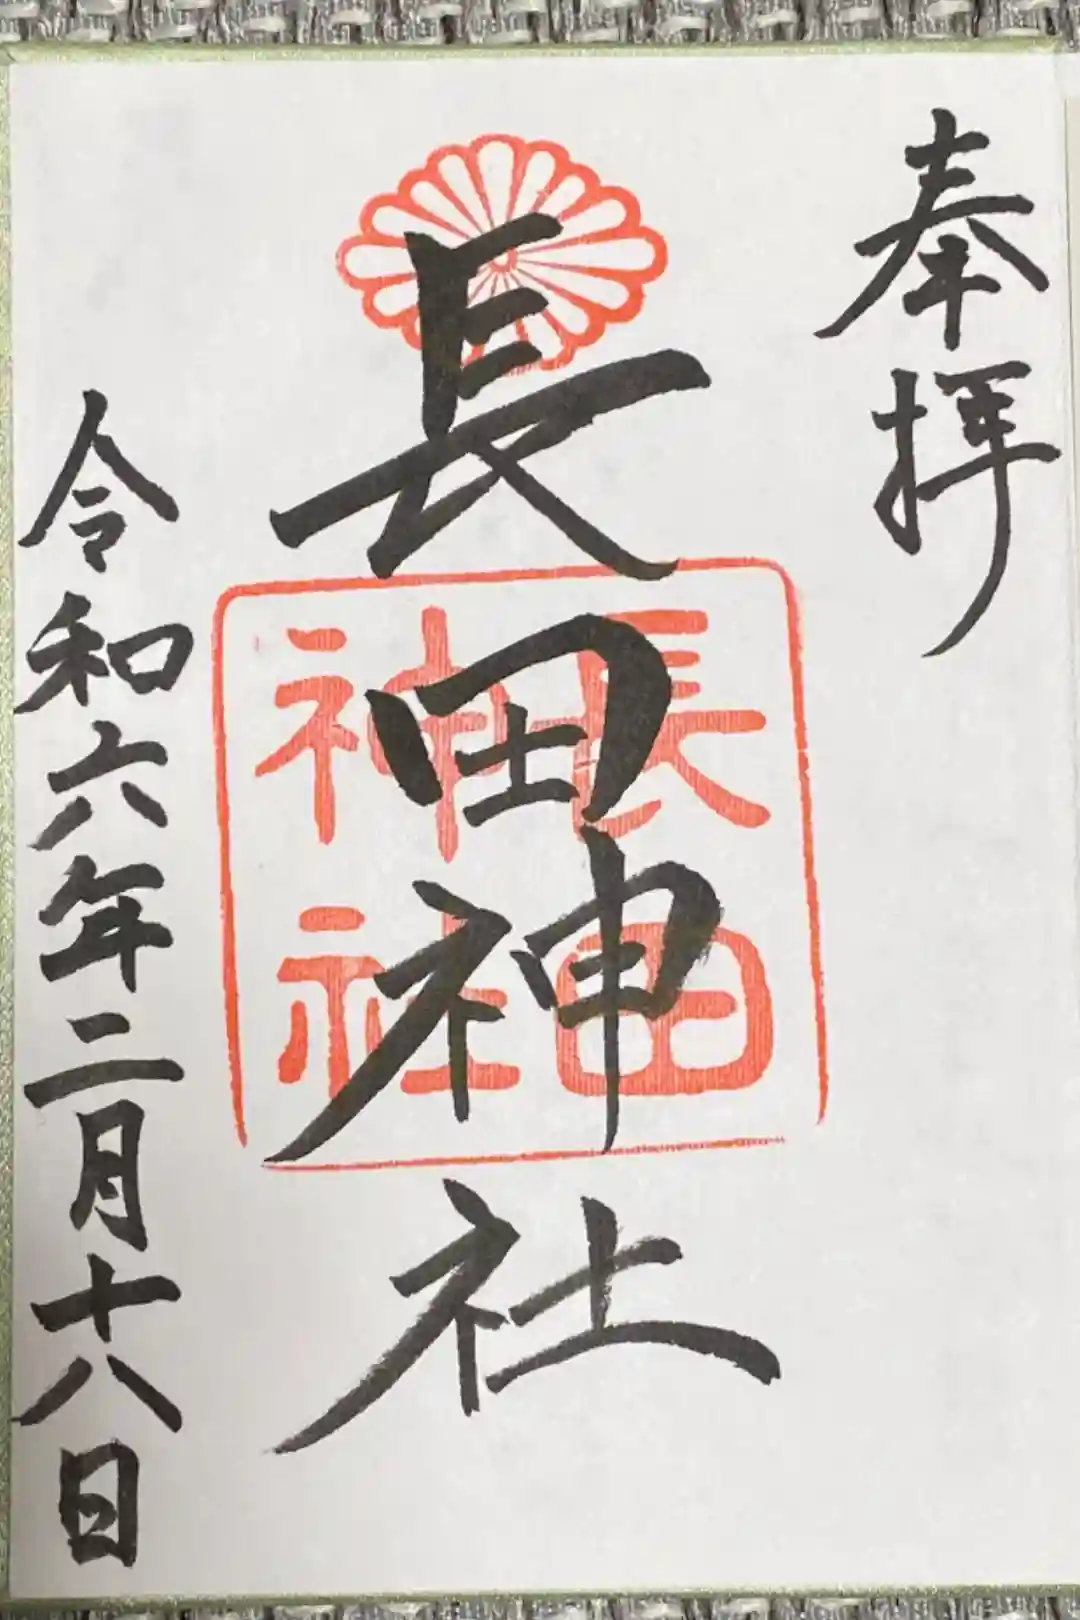 奉拝
長田神社
長田
神社
令和六年二月十八日